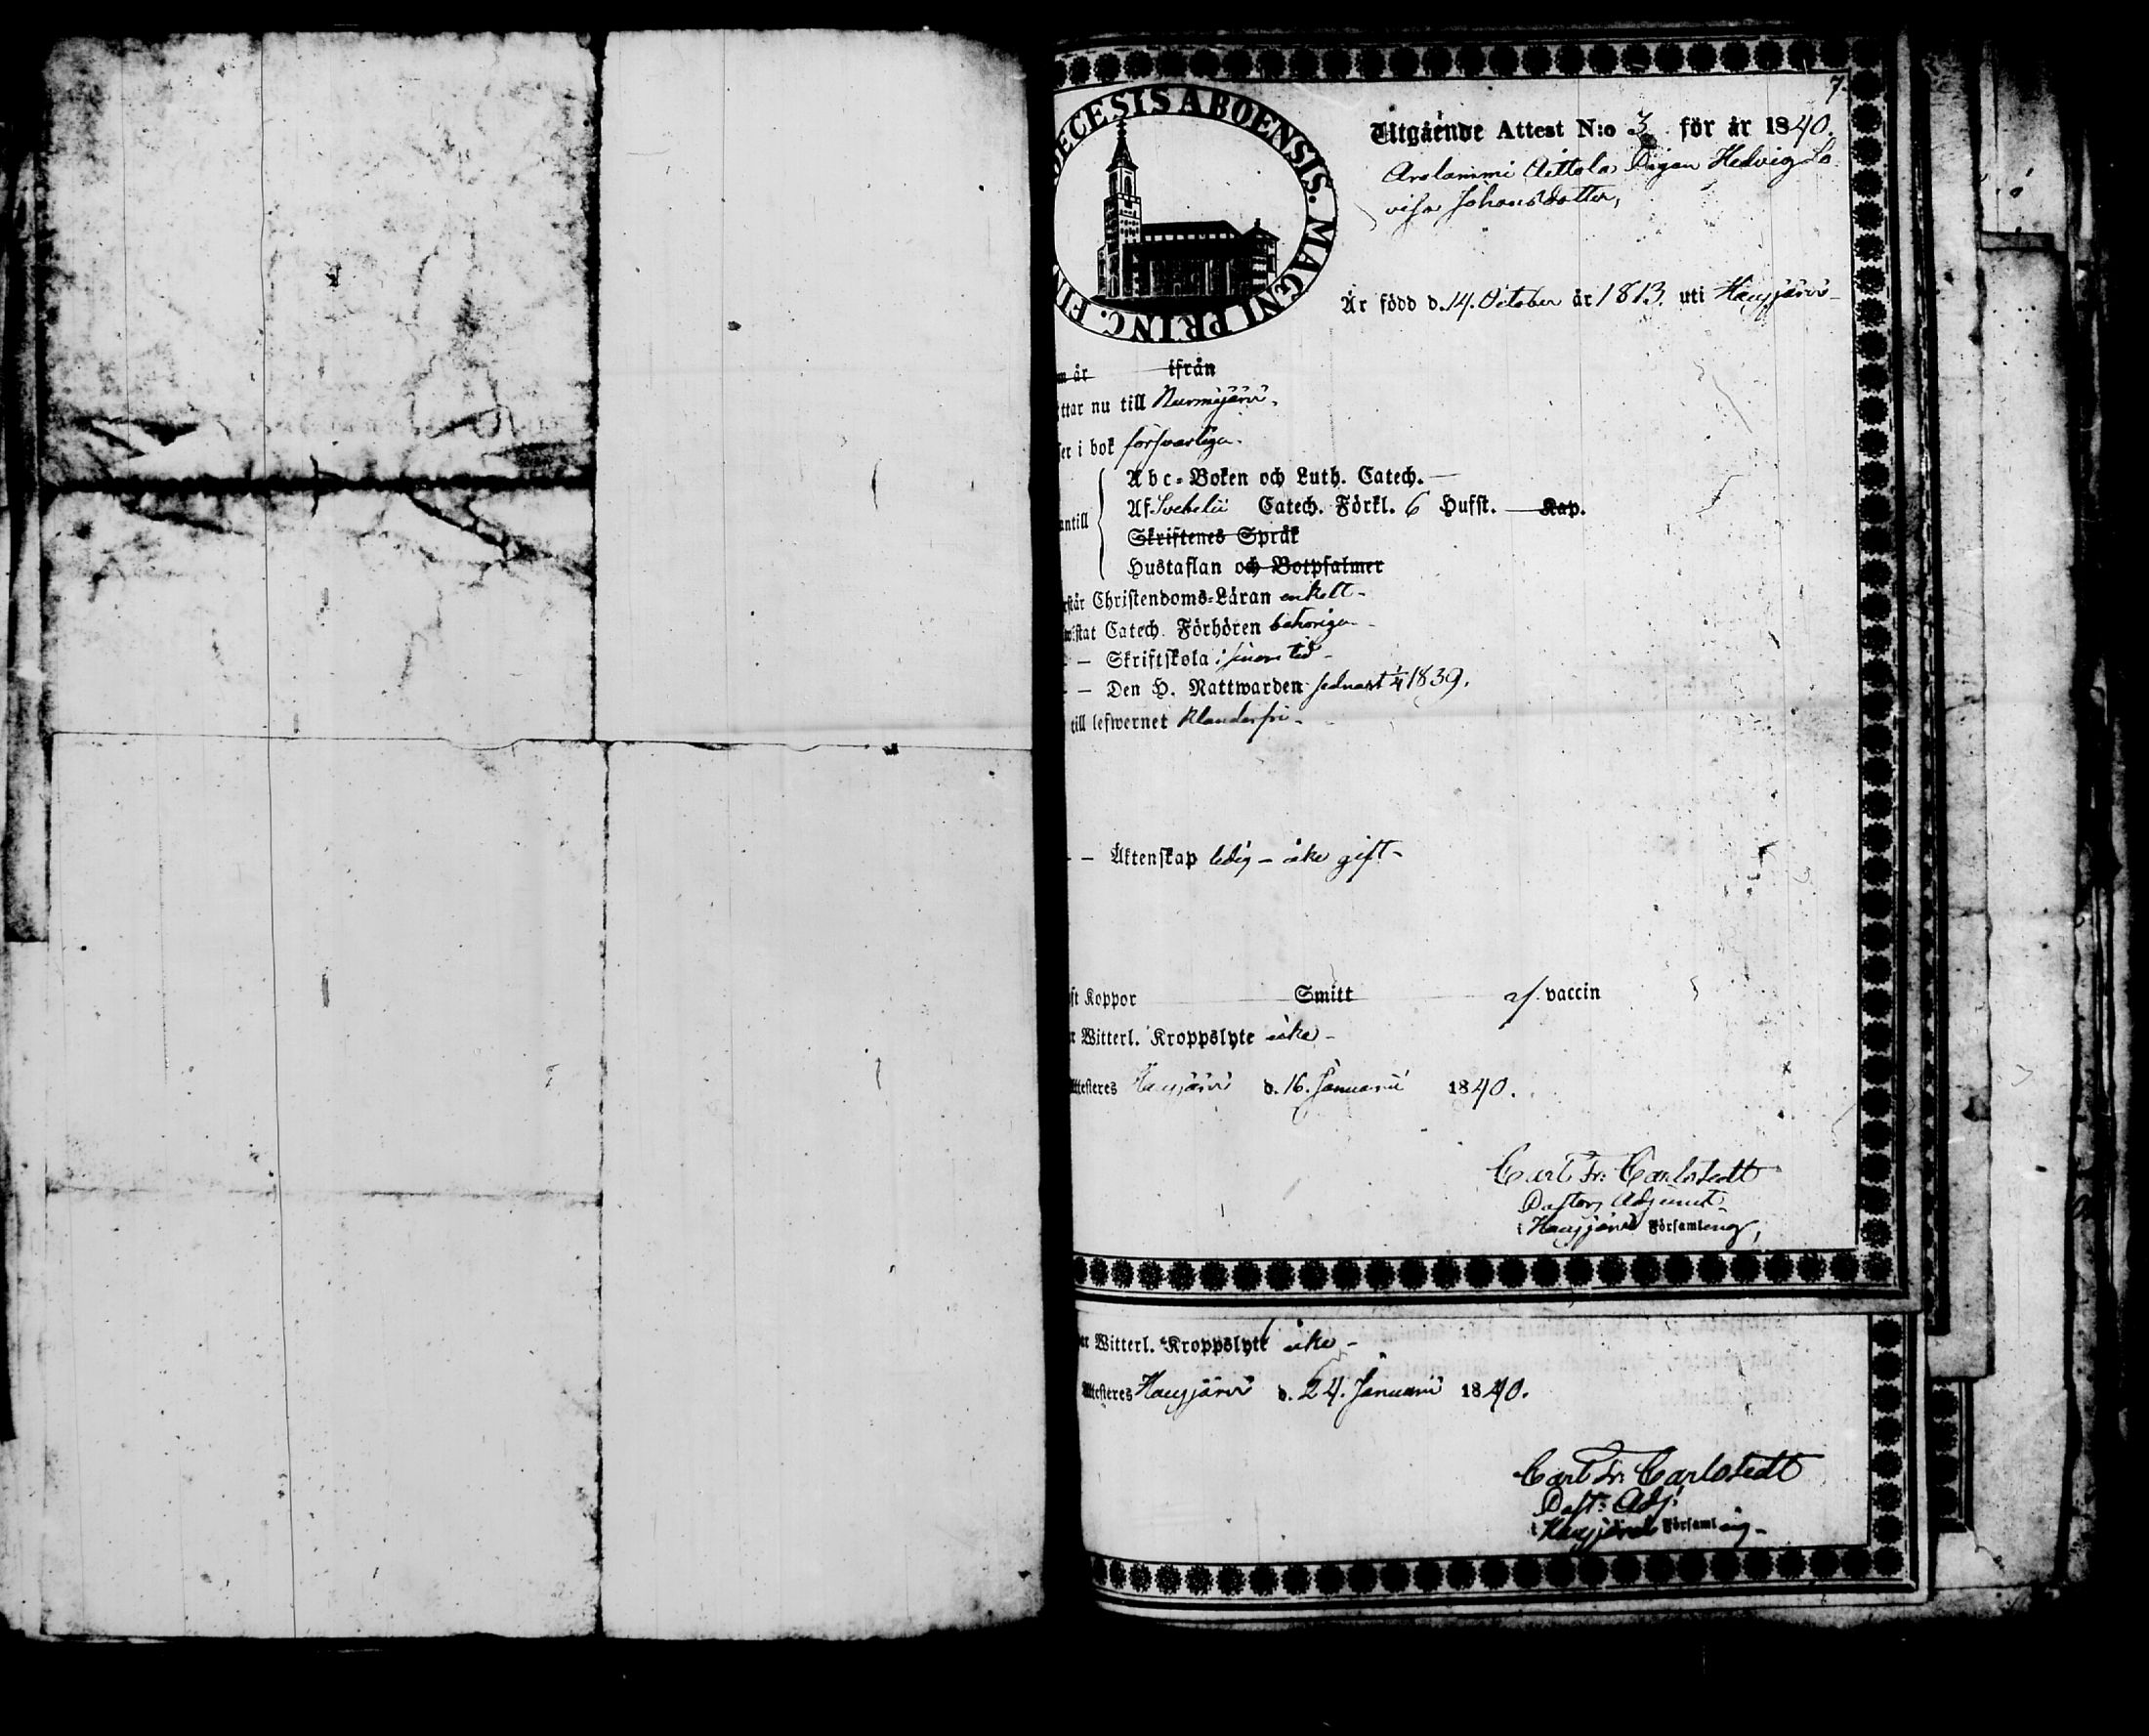 7.
DIOECESIS ABOENSIS. MAGNI PRINC. FIN
Utgående Attest N:o 3 för år 1840.
Arolammi Aittola Pigan Hedvig Lo-
visa Johansdotter,
Är född d. 14. October år 1813. uti Hausjärvi
m år ifrån
ttar nu till Nurmijärvi.
er i bok försvarliga.
Abc-Boken och Luth. Catech.
antill Af Svebelii Catech. Förkl. 6 Hufst. Kap.
Skriftenes Språk
Hustaflan och Botpsalmer
rstår Christendoms-Läran enkelt
istat Catech. Förhören behöriga
— Skriftskola i sinom tid
— Den H. Nattwarden sednast 1/4 1839.
till lefwernet klanderfri
— Äktenskap ledig – icke gift –
ft Koppor Smitt af vaccin
r Witterl. Kroppslyte icke –
Attesteres Hausjärvi d. 16. Januarii 1840.
Carl Fr: Carlstedt
Pastors Adjunct
i Hausjärvi Församling,
er Witterl. Kroppslyte icke –
Attesteres Hausjärvi d. 24. Januarii 1840.
Carl Fr: Carlstedt
Past: Adj:
i Hausjärvi Församling